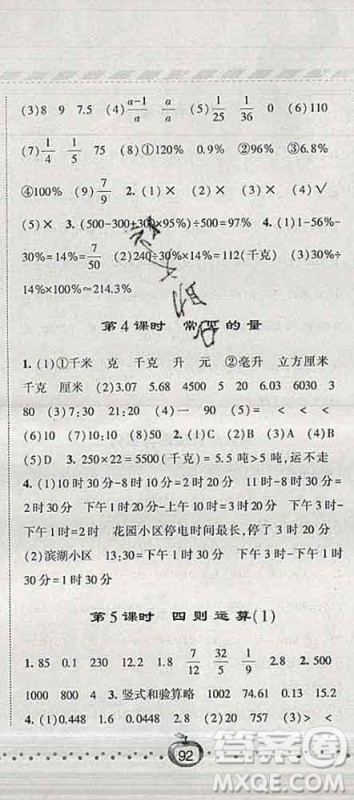 (3)8 9 7.5 (4)a-1/a a/a (5)1/25 1/36 0 (6)110
(7)1/4 1/5 75 (8)①120% 0.9% ②96% ③8%
④100% 7/9 2.(1)× (2)× (3)× (4)√
(5)× 3.(500-300+300×95%)÷500=97% 4.(1)1-56%-
30%=14%=7/50 (2)240÷30%×14%=112(千克) (3)30%÷
14%×100%≈214.3%
第4课时 常见的量
1.(1)①千米 克 千克 升 元 ②毫升 立方厘米
千克 厘米 (2)3.07 5.68 4 5 20 6030 3
80 (3)7:20 21:20 (4)9 (5)> = < < <
(6)10 (7)10:10 (8)50 2.(1)C (2)C (3)A (4)A
(5)D 3.250×22=5500(千克)=5.5吨>5吨,运不走
4.(1)10时30分-8时10分=2时20分 11时-8时30分=
2时30分 下午6时20分-下午3时=3时20分 下午3时
20分>2时20分 花园小区停电时间最长,停了3时20分
(2)滨湖小区 13:30=下午1时30分 下午3时-下午1时
30分=1时30分
第5课时 四则运算(1)
1.85 0.1 230 12.2 1.8 7/12 32/5 1/3 2.8 2.500
1000 800 4 3.竖式和验算略 1002 74.61 0.13 12
4.(1)0.448 1.6 0.0448 2.8 (2)20 757 (3)> < >
92
答案圈
MXQE.COM